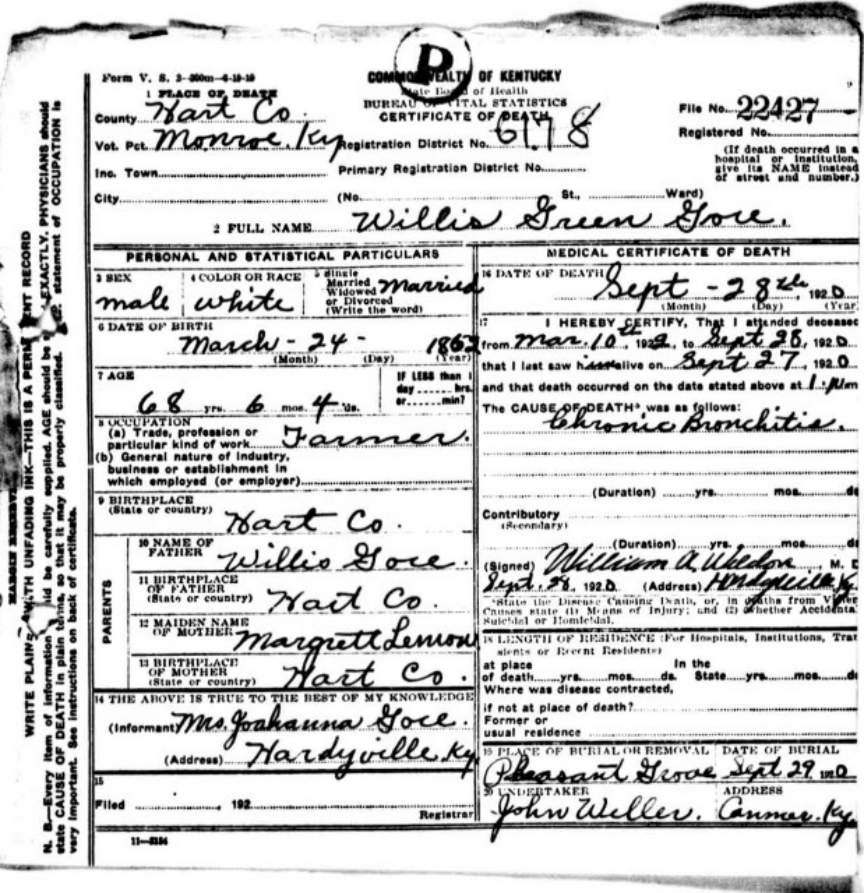 D
Form V. S. 3-300m-6-19-19
COMMONWEALTH OF KENTUCKY
State Board of Health
BUREAU OF VITAL STATISTICS
CERTIFICATE OF DEATH
1 PLACE OF DEATH
County Hart Co.
Vot. Pct. Monroe, Ky
Registration District No. 6178
Inc. Town
Primary Registration District No.
City
(No. St., Ward)
File No. 22427
Registered No.
(If death occurred in a
hospital or institution,
give its NAME instead
of street and number.)
2 FULL NAME Willis Green Gore.
PERSONAL AND STATISTICAL PARTICULARS
3 SEX
male
4 COLOR OR RACE
white
5 Single
Married
Widowed
or Divorced
(Write the word)
Married
6 DATE OF BIRTH
March - 24 - 1862
(Month) (Day) (Year)
7 AGE
68 yrs. 6 mos. 4 ds.
IF LESS than 1
day hrs.
or min?
8 OCCUPATION
(a) Trade, profession or
particular kind of work Farmer.
(b) General nature of industry,
business or establishment in
which employed (or employer)
9 BIRTHPLACE
(State or country)
Hart Co.
PARENTS
10 NAME OF
FATHER
Willis Gore.
11 BIRTHPLACE
OF FATHER
(State or country)
Hart Co.
12 MAIDEN NAME
OF MOTHER
Margrett Lemon
13 BIRTHPLACE
OF MOTHER
(State or country)
Hart Co.
14 THE ABOVE IS TRUE TO THE BEST OF MY KNOWLEDGE
(Informant) Mrs. Joahanna Gore.
(Address) Hardyville Ky
15
Filed , 192
Registrar
11-3184
MEDICAL CERTIFICATE OF DEATH
16 DATE OF DEATH
Sept - 28th, 1920
(Month) (Day) (Year
17 I HEREBY CERTIFY, That I attended deceased
from Mar. 10th, 192 , to Sept 28, 1920
that I last saw him alive on Sept 27, 1920
and that death occurred on the date stated above at 1. Pm
The CAUSE OF DEATH* was as follows:
Chronic Bronchitis.
(Duration) yrs. mos. ds
Contributory
(Secondary)
(Duration) yrs. mos. ds
(Signed) William A Weldon, M. D
Sept. 28, 1920 (Address) Hardyville Ky
*State the Disease Causing Death, or, in deaths from Violent
Causes state (1) Means of Injury; and (2) whether Accidental
Suicidal or Homicidal.
18 LENGTH OF RESIDENCE (For Hospitals, Institutions, Tran
sients or Recent Residents)
at place In the
of death yrs. mos. ds. State yrs. mos. ds
Where was disease contracted,
if not at place of death?
Former or
usual residence
19 PLACE OF BURIAL OR REMOVAL DATE OF BURIAL
Pleasant Grove Sept 29 1920
20 UNDERTAKER ADDRESS
John Weller. Canmer, Ky
MARGIN RESERVE
WRITE PLAINLY WITH UNFADING INK—THIS IS A PERMANENT RECORD
N. B.—Every item of information should be carefully supplied. AGE should be EXACTLY. PHYSICIANS should
state CAUSE OF DEATH in plain terms, so that it may be properly classified. statement of OCCUPATION is
very important. See instructions on back of certificate.